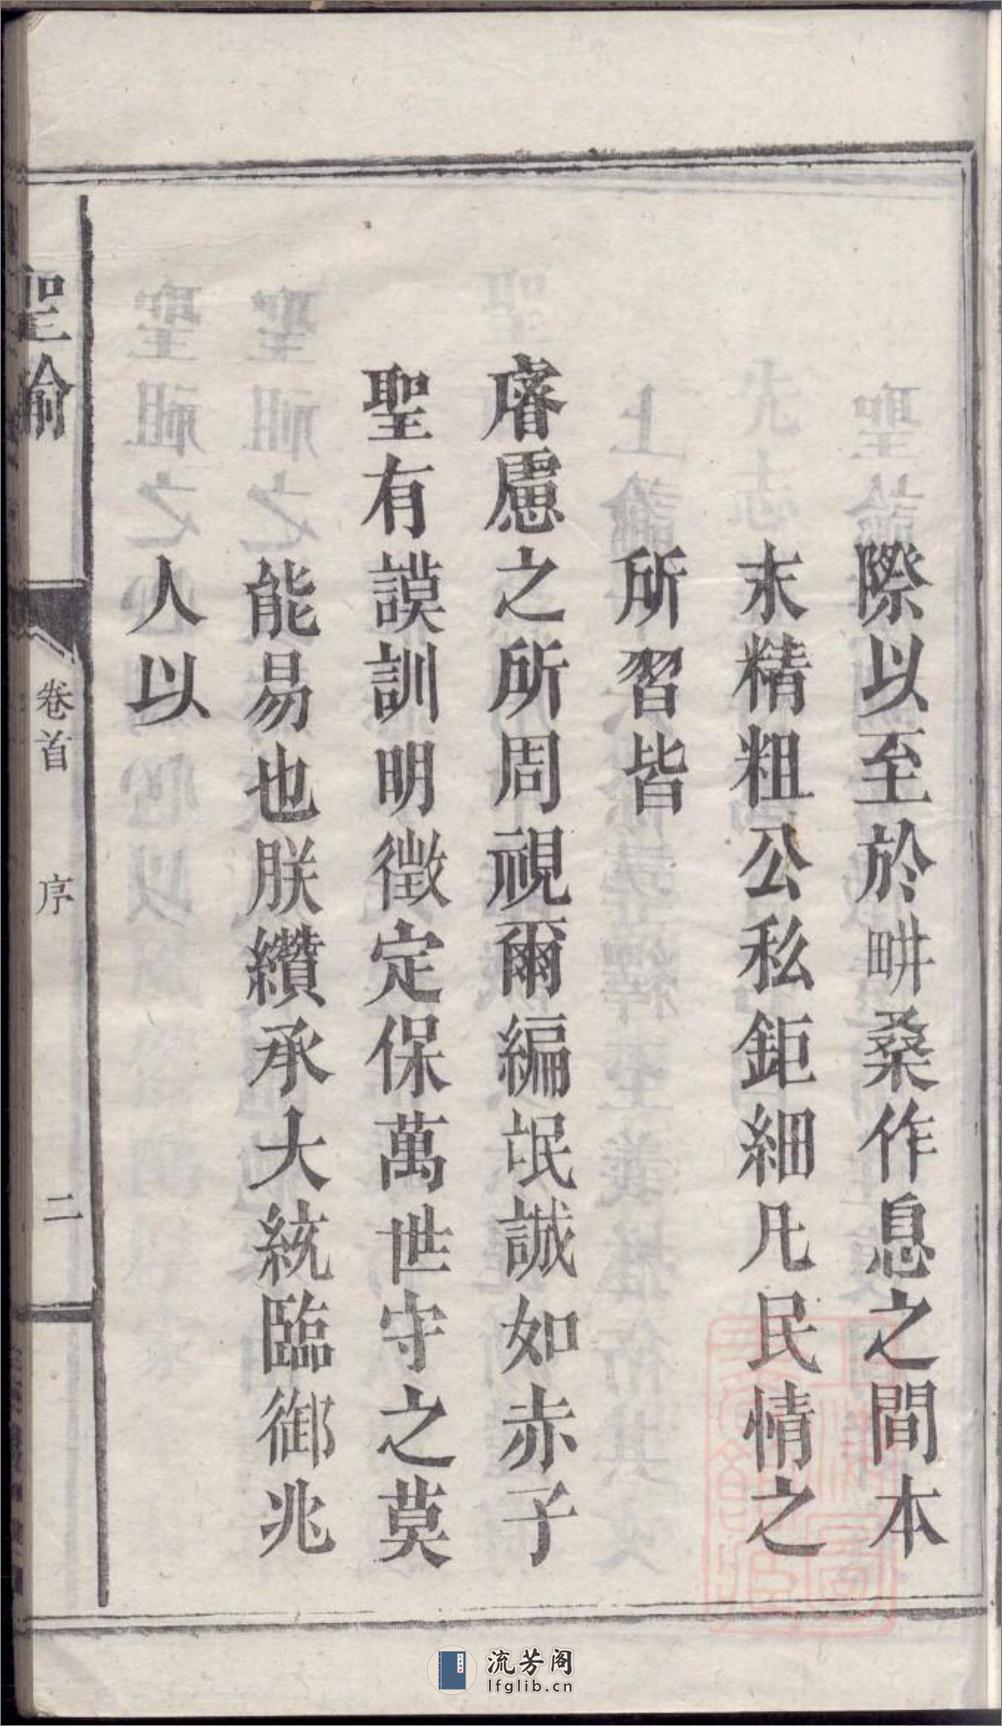 際以至於畊桑作息之間本
末精粗公私鉅細凡民情之
所習皆
睿慮之所周視爾編氓誠如赤子
聖有謨訓明徵定保萬世守之莫
能易也朕纘承大統臨御兆
人以
聖諭
卷首 序 二
流芳阁
lfglib.cn